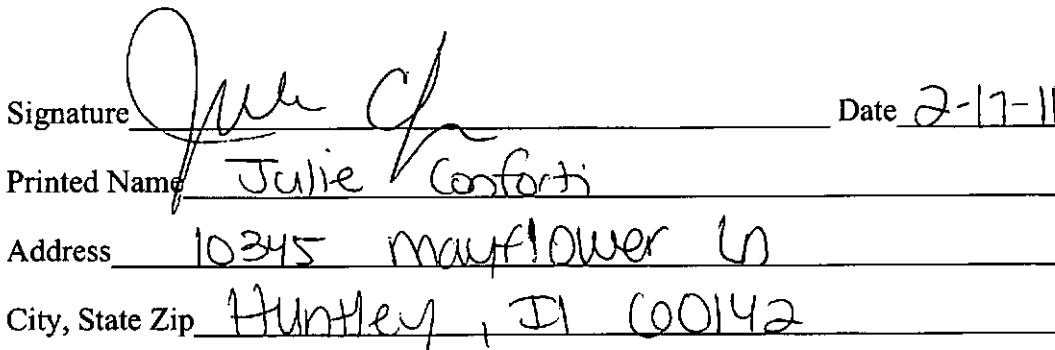 Signature Julie C Date 2-17-11
Printed Name Julie Conforti
Address 10345 Mayflower Ln
City, State Zip Huntley, Il 60142